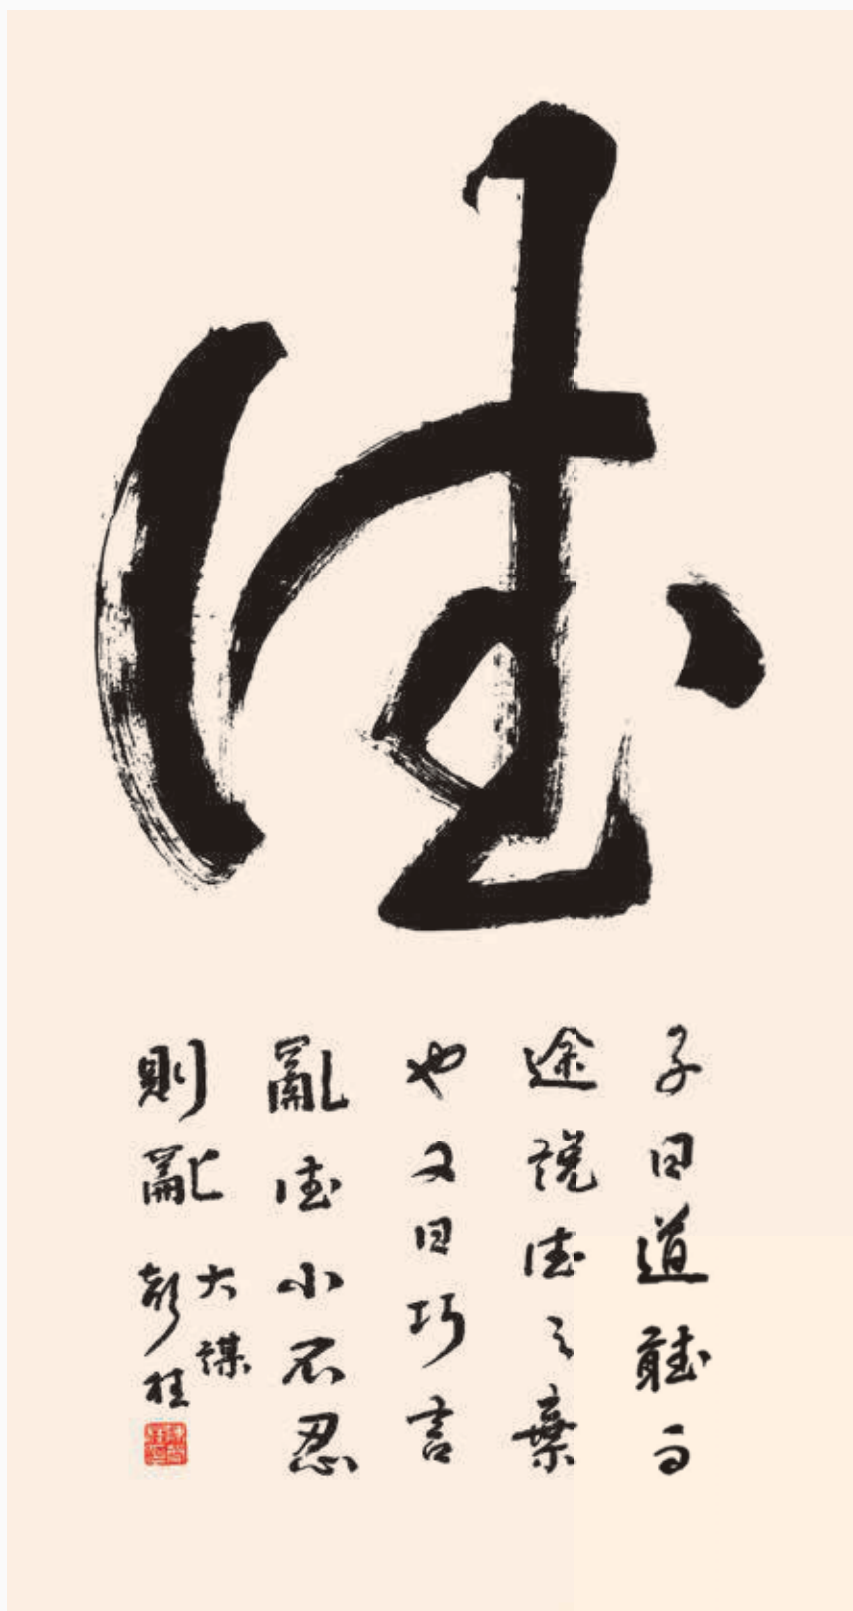 德
子曰道聽而
途說德之棄
也又曰巧言
亂德小不忍
則亂大謀
彭